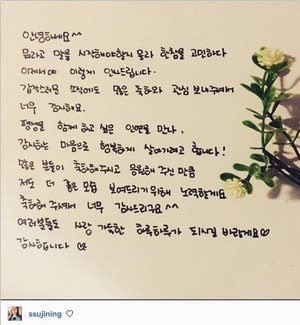 안녕하세요^^
뭐라고 말을 시작해야할지 몰라 한참을 고민하다
이제서야 이렇게 인사드립니다.
갑작스러운 소식에도 많은 축하와 관심 보내주셔서
너무 감사해요.
평생을 함께 하고 싶은 인연을 만나,
감사하는 마음으로 행복하게 살아가려고 합니다!
많은 분들이 축하해주시고 응원해 주신 만큼
저도 더 좋은 모습 보여드리기 위해 노력할게요
축하해 주셔서 너무 감사드리구요^^
여러분들도 사랑 가득한 하루하루가 되시길 바랄게요♡
감사합니다 ♡
ssujining ♡